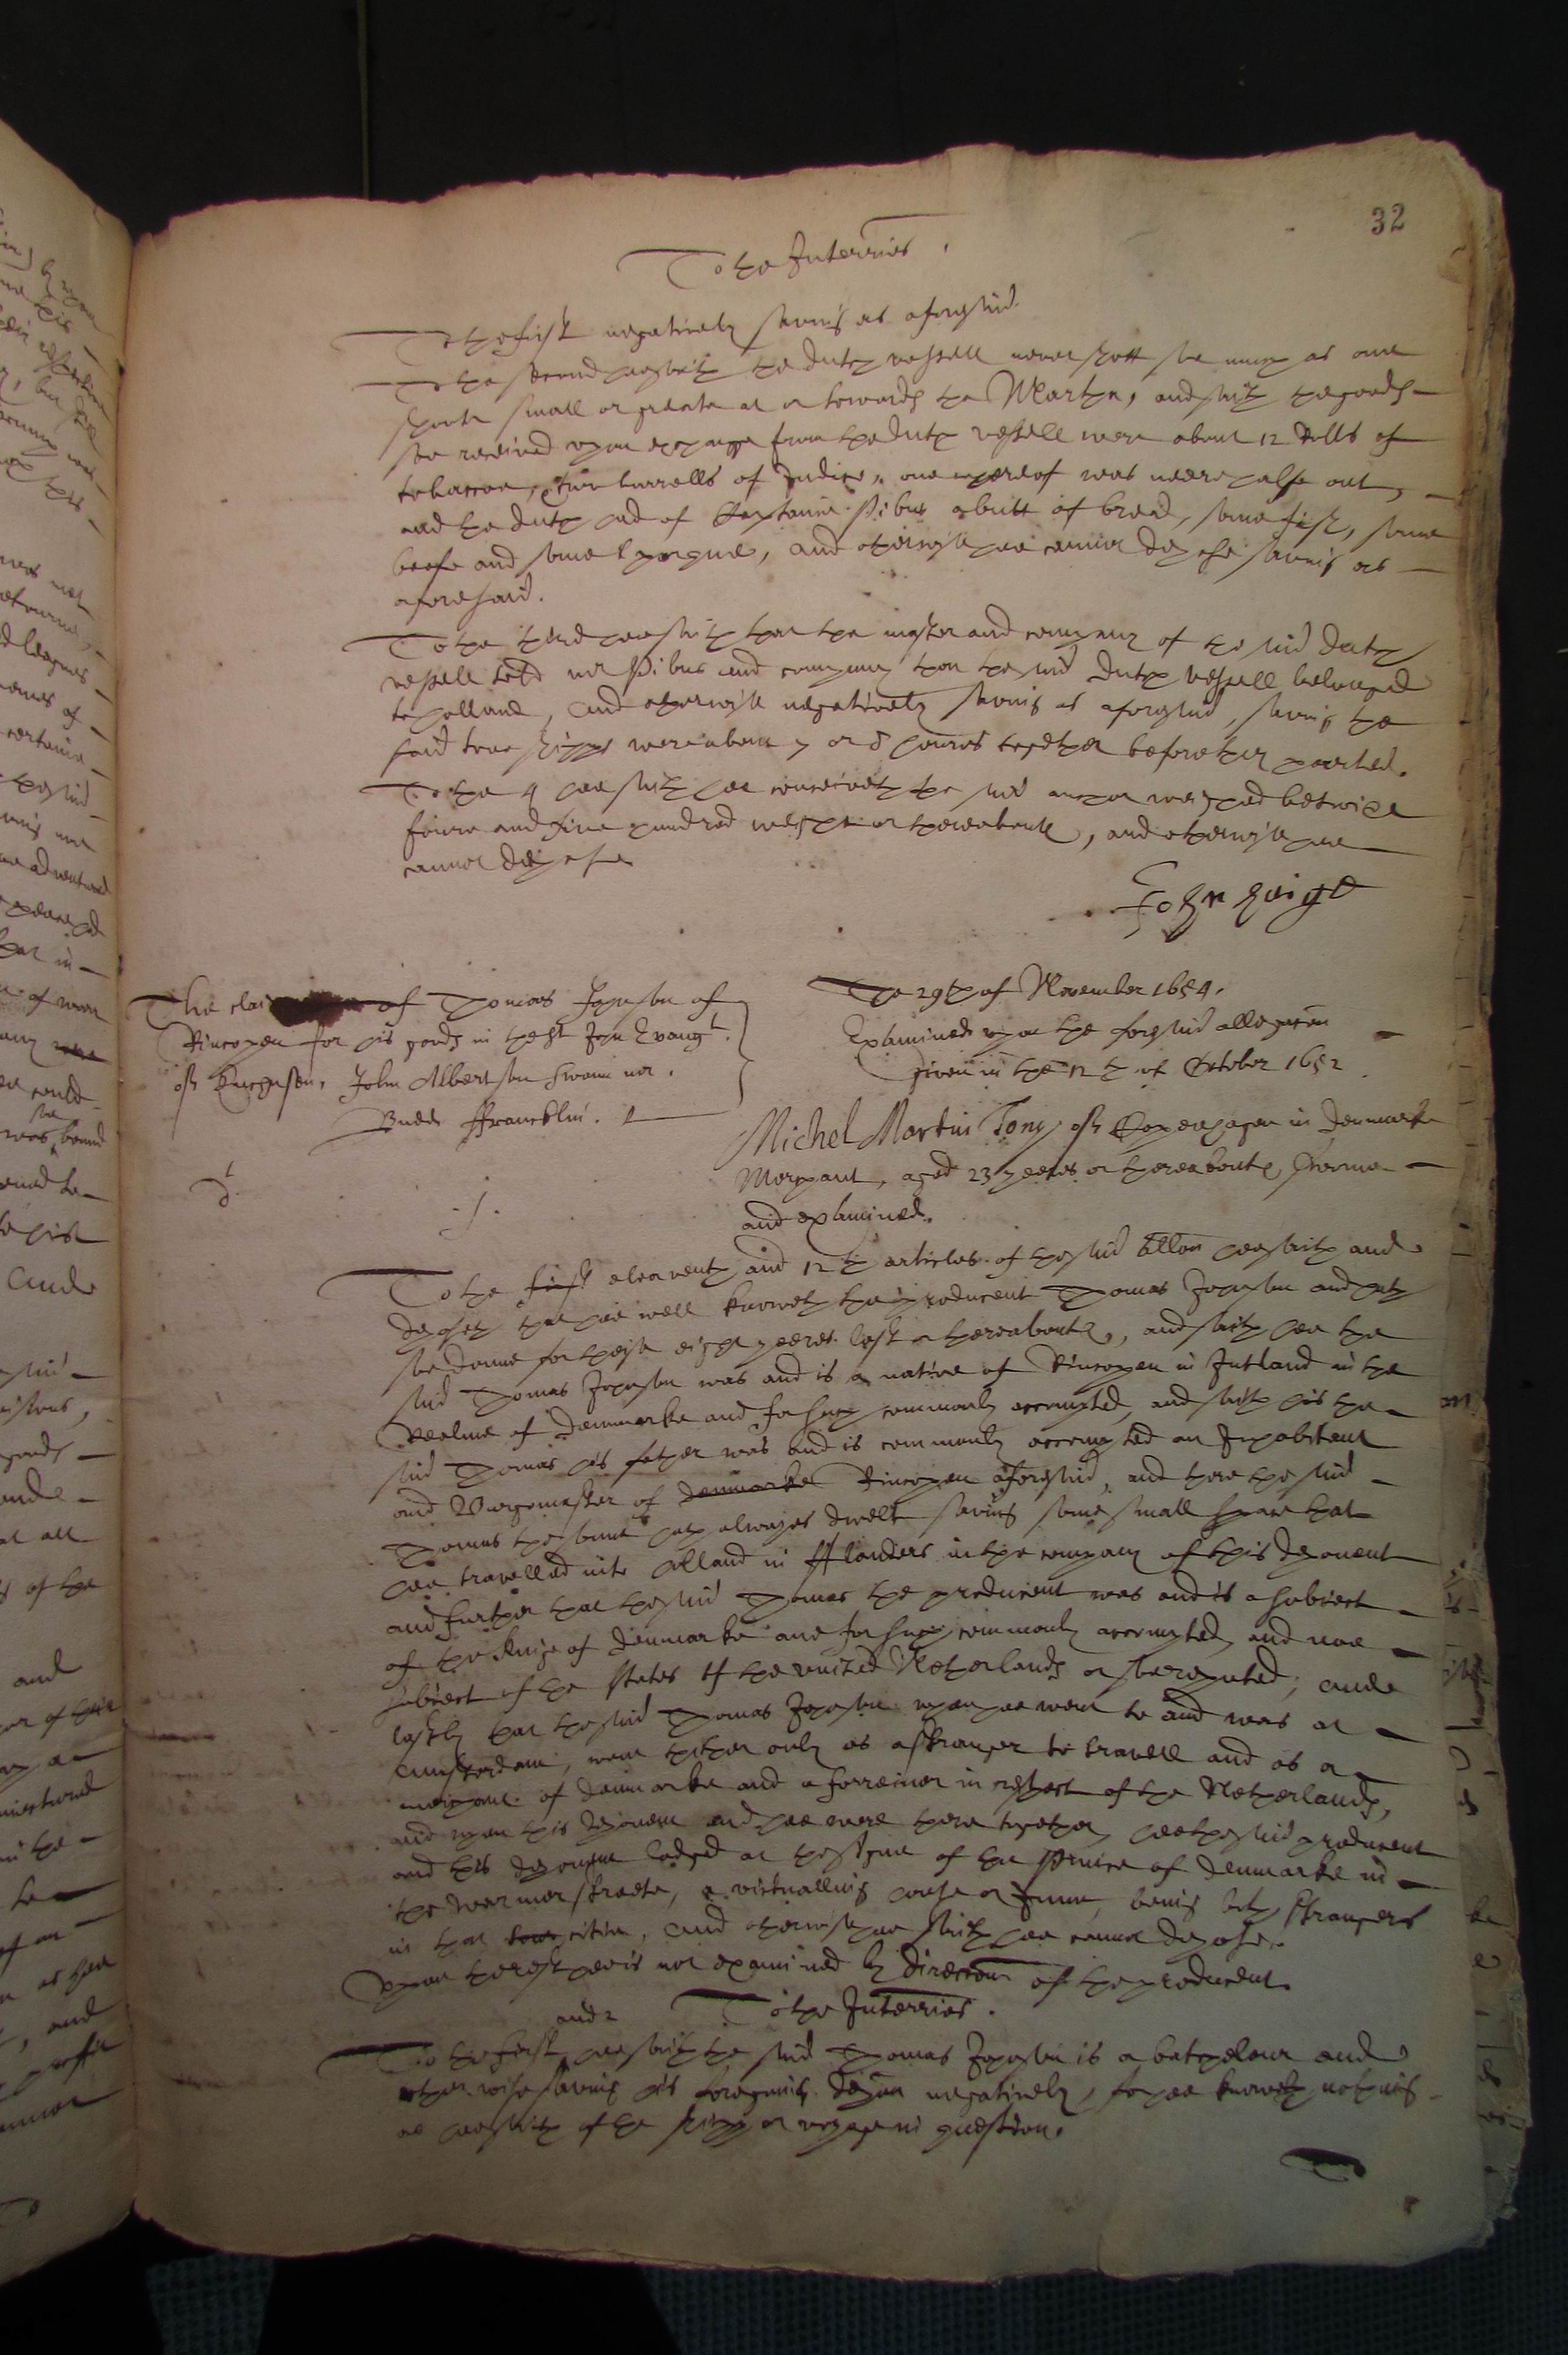 32
To the Interries.
To the first negatively saving as aforesaid.
To the second hee saith the dutch vessell never shott soe much as one
shoote small or greate at or towards the Martha, and saith the goods
soe received upon exchange from the dutch vessell were about 12 Rolls of
tobaccoe, two barrells of Indico, one whereof was neere halfe out,
and the dutch had of Captaine Pibus a butt of bread, some fish, some
beefe and some and otherwise hee cannot depose saving as
aforesaid.
To the third hee saith that the master and company of the said dutch
vessell told Pibus and company that the said dutch vessell belonged
to holland, and otherwise negatively saving as aforesaid, saving the
said two shipps were about 7 or 8 houres together before they parted.
To the 4 hee saith hee conceiveth the said anchor weighed betwixt
foure and five hundred weight or thereabouts, and otherwise hee
cannot depose
John
The clai of Thomas Johnson of
Rincopen for his goods in the St John Evangt.
of John Albertson Swann mr.
Budd ffrancklin.
The 29th of November 1654.
Examined upon the foresaid allegacon
given in the 12th of October 1652.
Michel Martin Tony of Copenhagen in denmarke
Merchant, aged 23 yeeres or thereabouts, sworne
and examined.
j.
To the first eleaventh and 12th articles of the said allon hee saith and
deposeth that hee well knoweth the producent Thomas Johnson and hath
soe donne for these eight yeeres last or thereabouts, and saith hee the
said Thomas Johnson was and is a native of Rincopen in Jutland in the
Realme of denmarke and for such commonly accompted, and saith his the
said Thomas his father was and is commonly accompted an Inhabitant
and Burgomaster of denmarke Rincopen aforesaid, and there the said
Thomas the sonne hath alwayes dwelt saving some small space that
hee travelled into holland in fflanders in the company of this deponent
and further that the said Thomas the producent was and is a subiect
of the Kinge of denmarke and for such commonly accompted, and noe
subiect of the States of the united Netherlands or soe reputed, and
lastly that the said Thomas Johnson when hee went to and was at
Amsterdam, went thither only as a stranger to travell and as a
merchant of denmarke and a forreiner in respect of the Netherlands,
and when this deponent and hee were there together, hee the said producent
and this deponent lodged at the signe of the Prince of denmarke in
the Warmer streete, a victualling house or Inne, being both strangers
in that towne citie, and otherwise hee saith hee cannot depose.
Upon the rest hee is not examined by direccon of the producent.
To the Interries.
and 2
To the first hee saith the said Thomas Johnson is a batchelour and
otherwise saving his foregoing depon negatively, for hee knoweth nothing
as hee saith of the shipp or voyage in question.